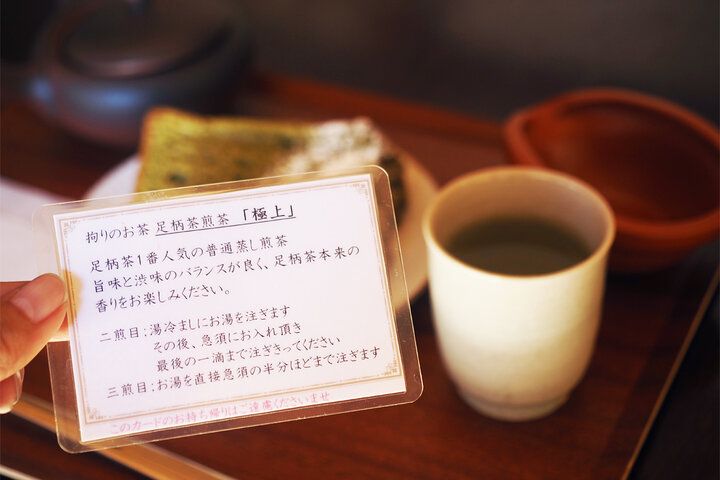 拘りのお茶 足柄茶煎茶 「極上」
足柄茶1番人気の普通蒸し煎茶
旨味と渋味のバランスが良く、足柄茶本来の
香りをお楽しみください。
二煎目;湯冷ましにお湯を注ぎます
その後、急須にお入れ頂き
最後の一滴まで注ぎきってください
三煎目;お湯を直接急須の半分ほどまで注ぎます
このカードのお持ち帰りはご遠慮くださいませ